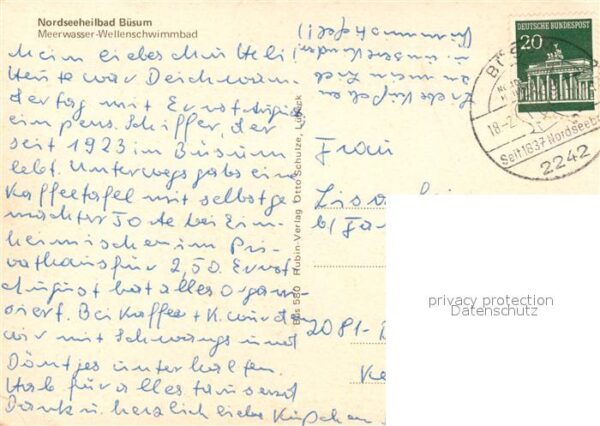 Nordseeheilbad Büsum
Meerwasser-Wellenschwimmbad
Mein liebes Mutteli
Heute war Deichwan
dertag mit Ernst August
ein pens. Schiffer, der
seit 1923 in Büsum
lebt. Unterwegs gabs eine
Kaffeetafel mit selbstge
machter Torte bei Ein
heimischen im Pri
vathaus für 2,50. Ernst
August hat alles organi
siert. Bei Kaffee + K. wurden
wir mit Schwangs und
Döntjes unterhalten.
Hab für alles tausend
Dank u. herzlich liebe Küßchen
Bus 580 Rubin-Verlag Otto Schulze, Lübeck
DEUTSCHE BUNDESPOST
20
18-2
Seit 1837 Nordseeb
2242
Frau
b/
2081-
privacy protection
Datenschutz